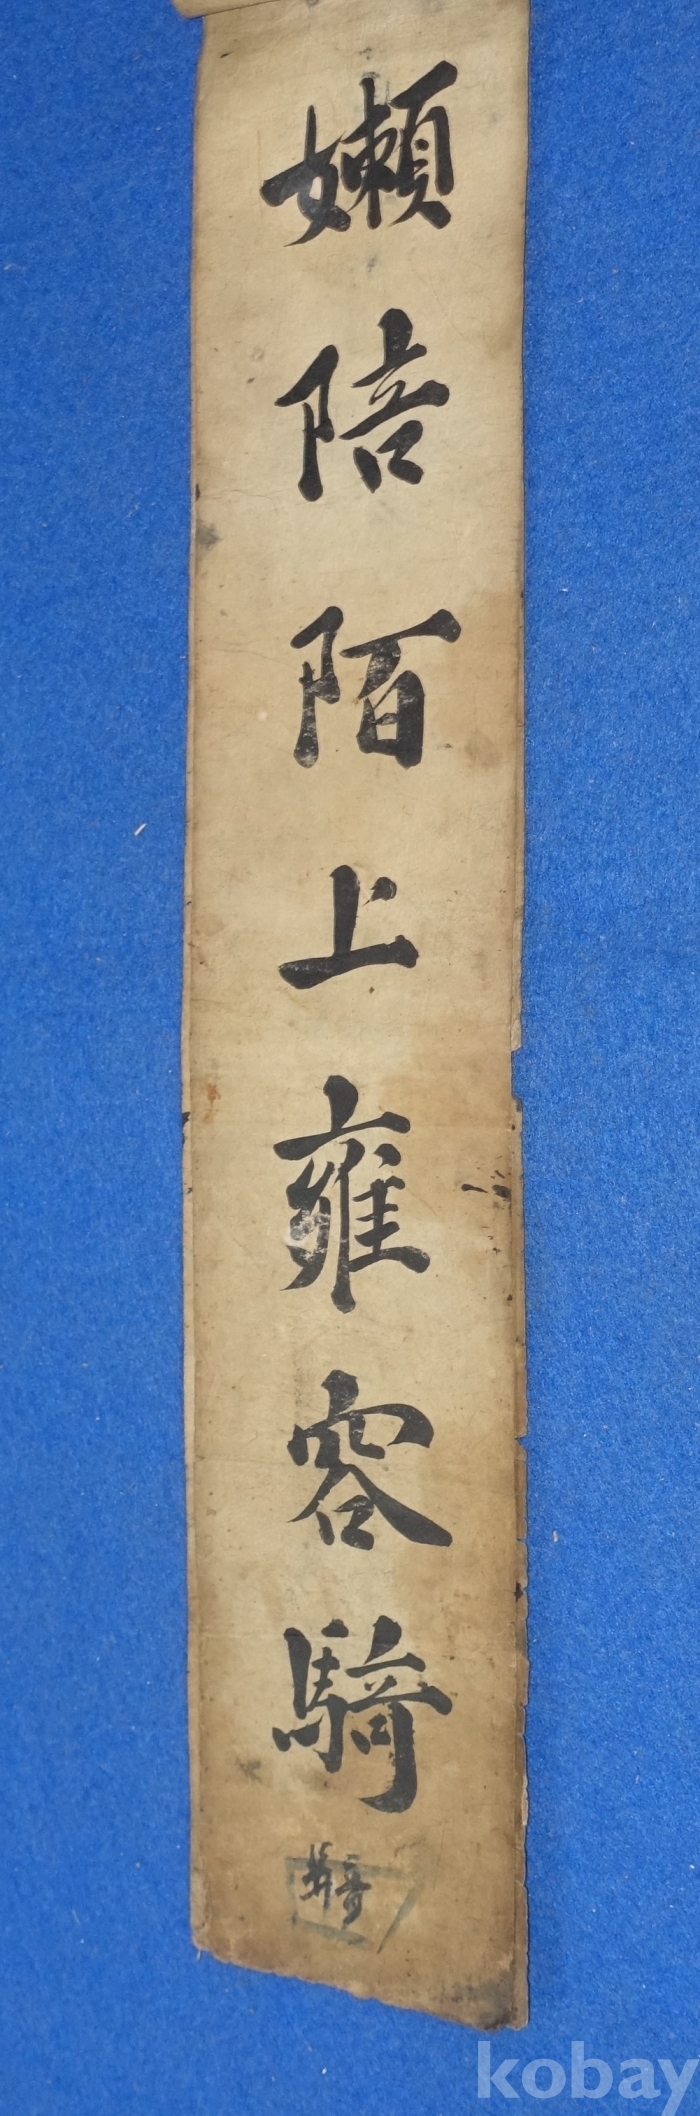 嬾陪陌上雍容騎
kobay